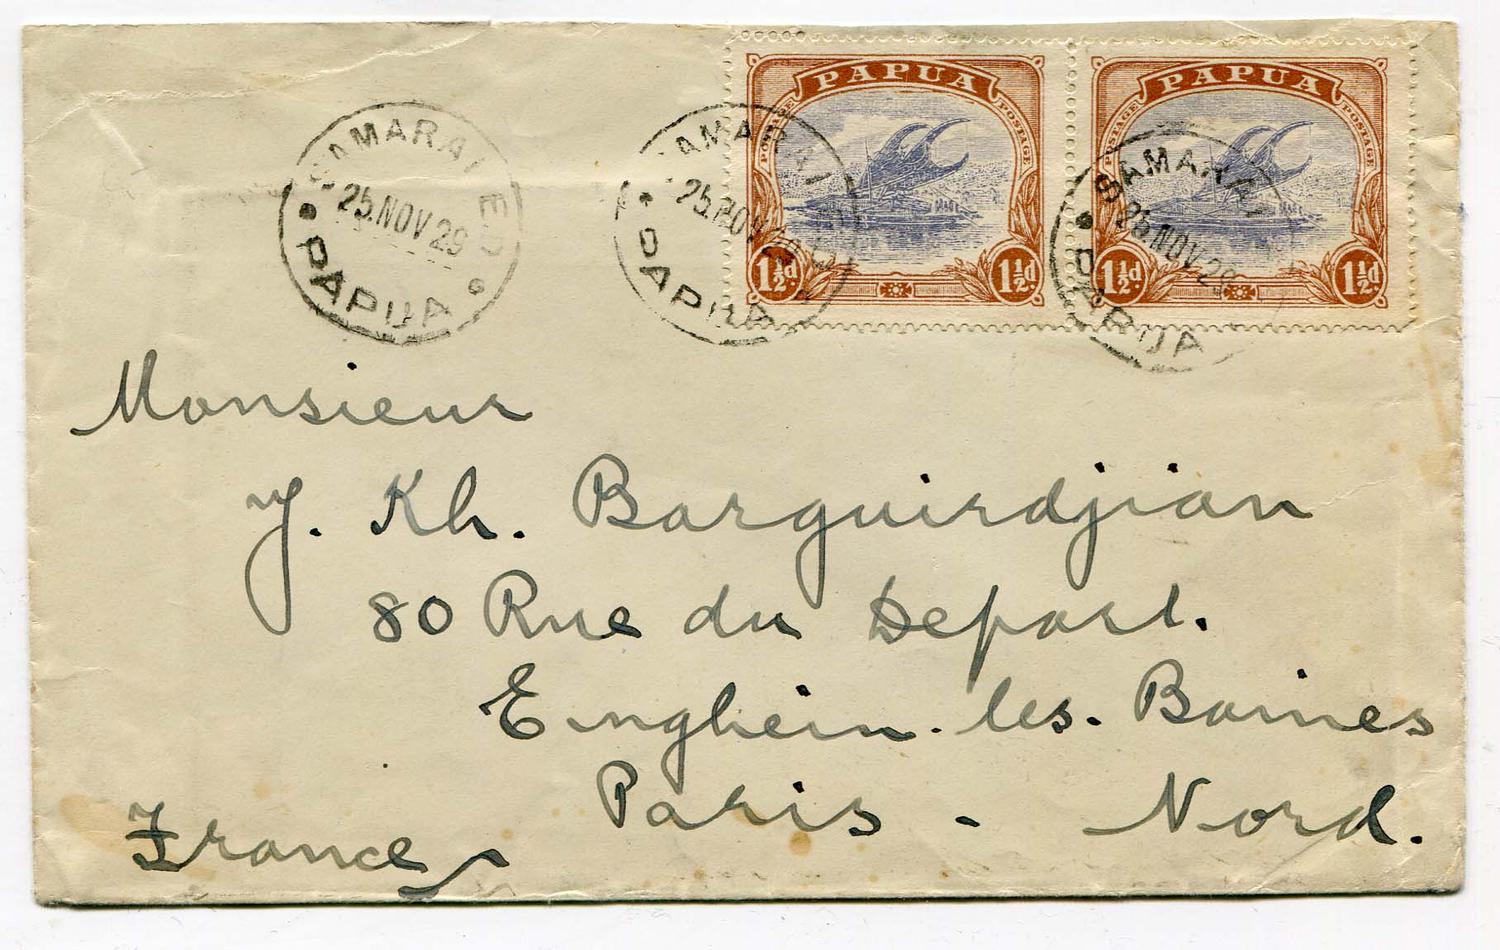 SAMARAI ED
25.NOV 29
PAPUA
SAMARAI
25.NOV
PAPUA
PAPUA
POSTAGE POSTAGE
1½d. 1½d.
PAPUA
POSTAGE POSTAGE
1½d. 1½d.
SAMARAI
25.NOV 29
PAPUA
Monsieur
J. Kh. Barguirdjian
80 Rue du Depart.
Enghein-les-Baines
Paris - Nord.
France